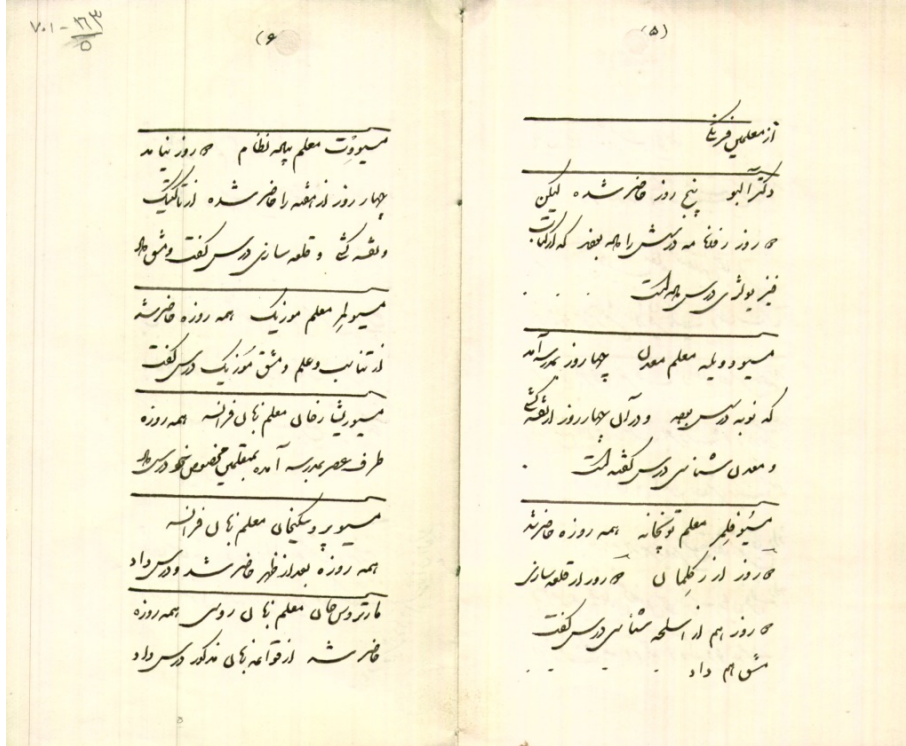 (۵)
از معلمین فرنگی
دکتر آلبو پنج روز حاضر شده لیکن
روز رفقا مه درسش را بعضی که از کتاب
فیزیولژی درس داده است
مسیو دویله معلم معدن چهار روز بمدرسه آمد
که نوبه درسش بوده و در آن چهار روز از نقشه کشی
و معدن شناسی درس گفته است
مسیو فلمر معلم توپخانه همه روزه حاضر شد
روز از زکلمان روز از قلعه سازی
روز هم از اسلحه شناسی درس گفت
مشق هم داد
(۶)
مسیو وت معلم پیاده نظام روز نیامد
چهار روز از هفته را حاضر شده از تاکتیک
و نقشه کشی و قلعه سازی درس گفت و مشق داد
مسیو لمر معلم موزیک همه روزه حاضر شد
از تناسب و علم و مشق موزیک درس گفت
مسیو ریشارخان معلم زبان فرانسه همه روزه
طرف عصر بمدرسه آمده بمتعلمین مخصوص خود درس داد
مسیو پروسکیخان معلم زبان فرانسه
همه روزه بعد از ظهر حاضر شد و درس داد
مارتروس خان معلم زبان روسی همه روزه
حاضر شد از قواعد زبان مذکور درس داد